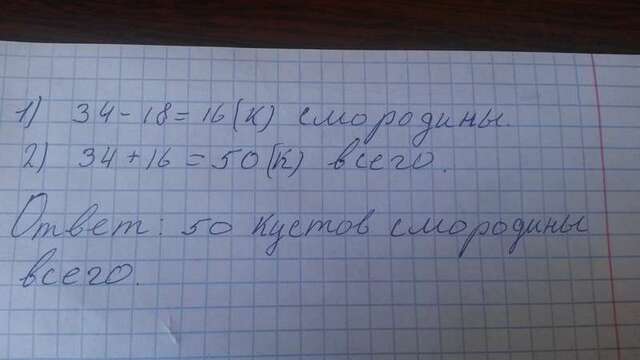 1) 34 - 18 = 16 (к) смородины.
2) 34 + 16 = 50 (к) всего.
Ответ: 50 кустов смородины
всего.